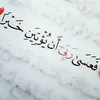 فَعَسَى رَبِّي أَنْ يُؤْتِيَنِ خَيْرًا